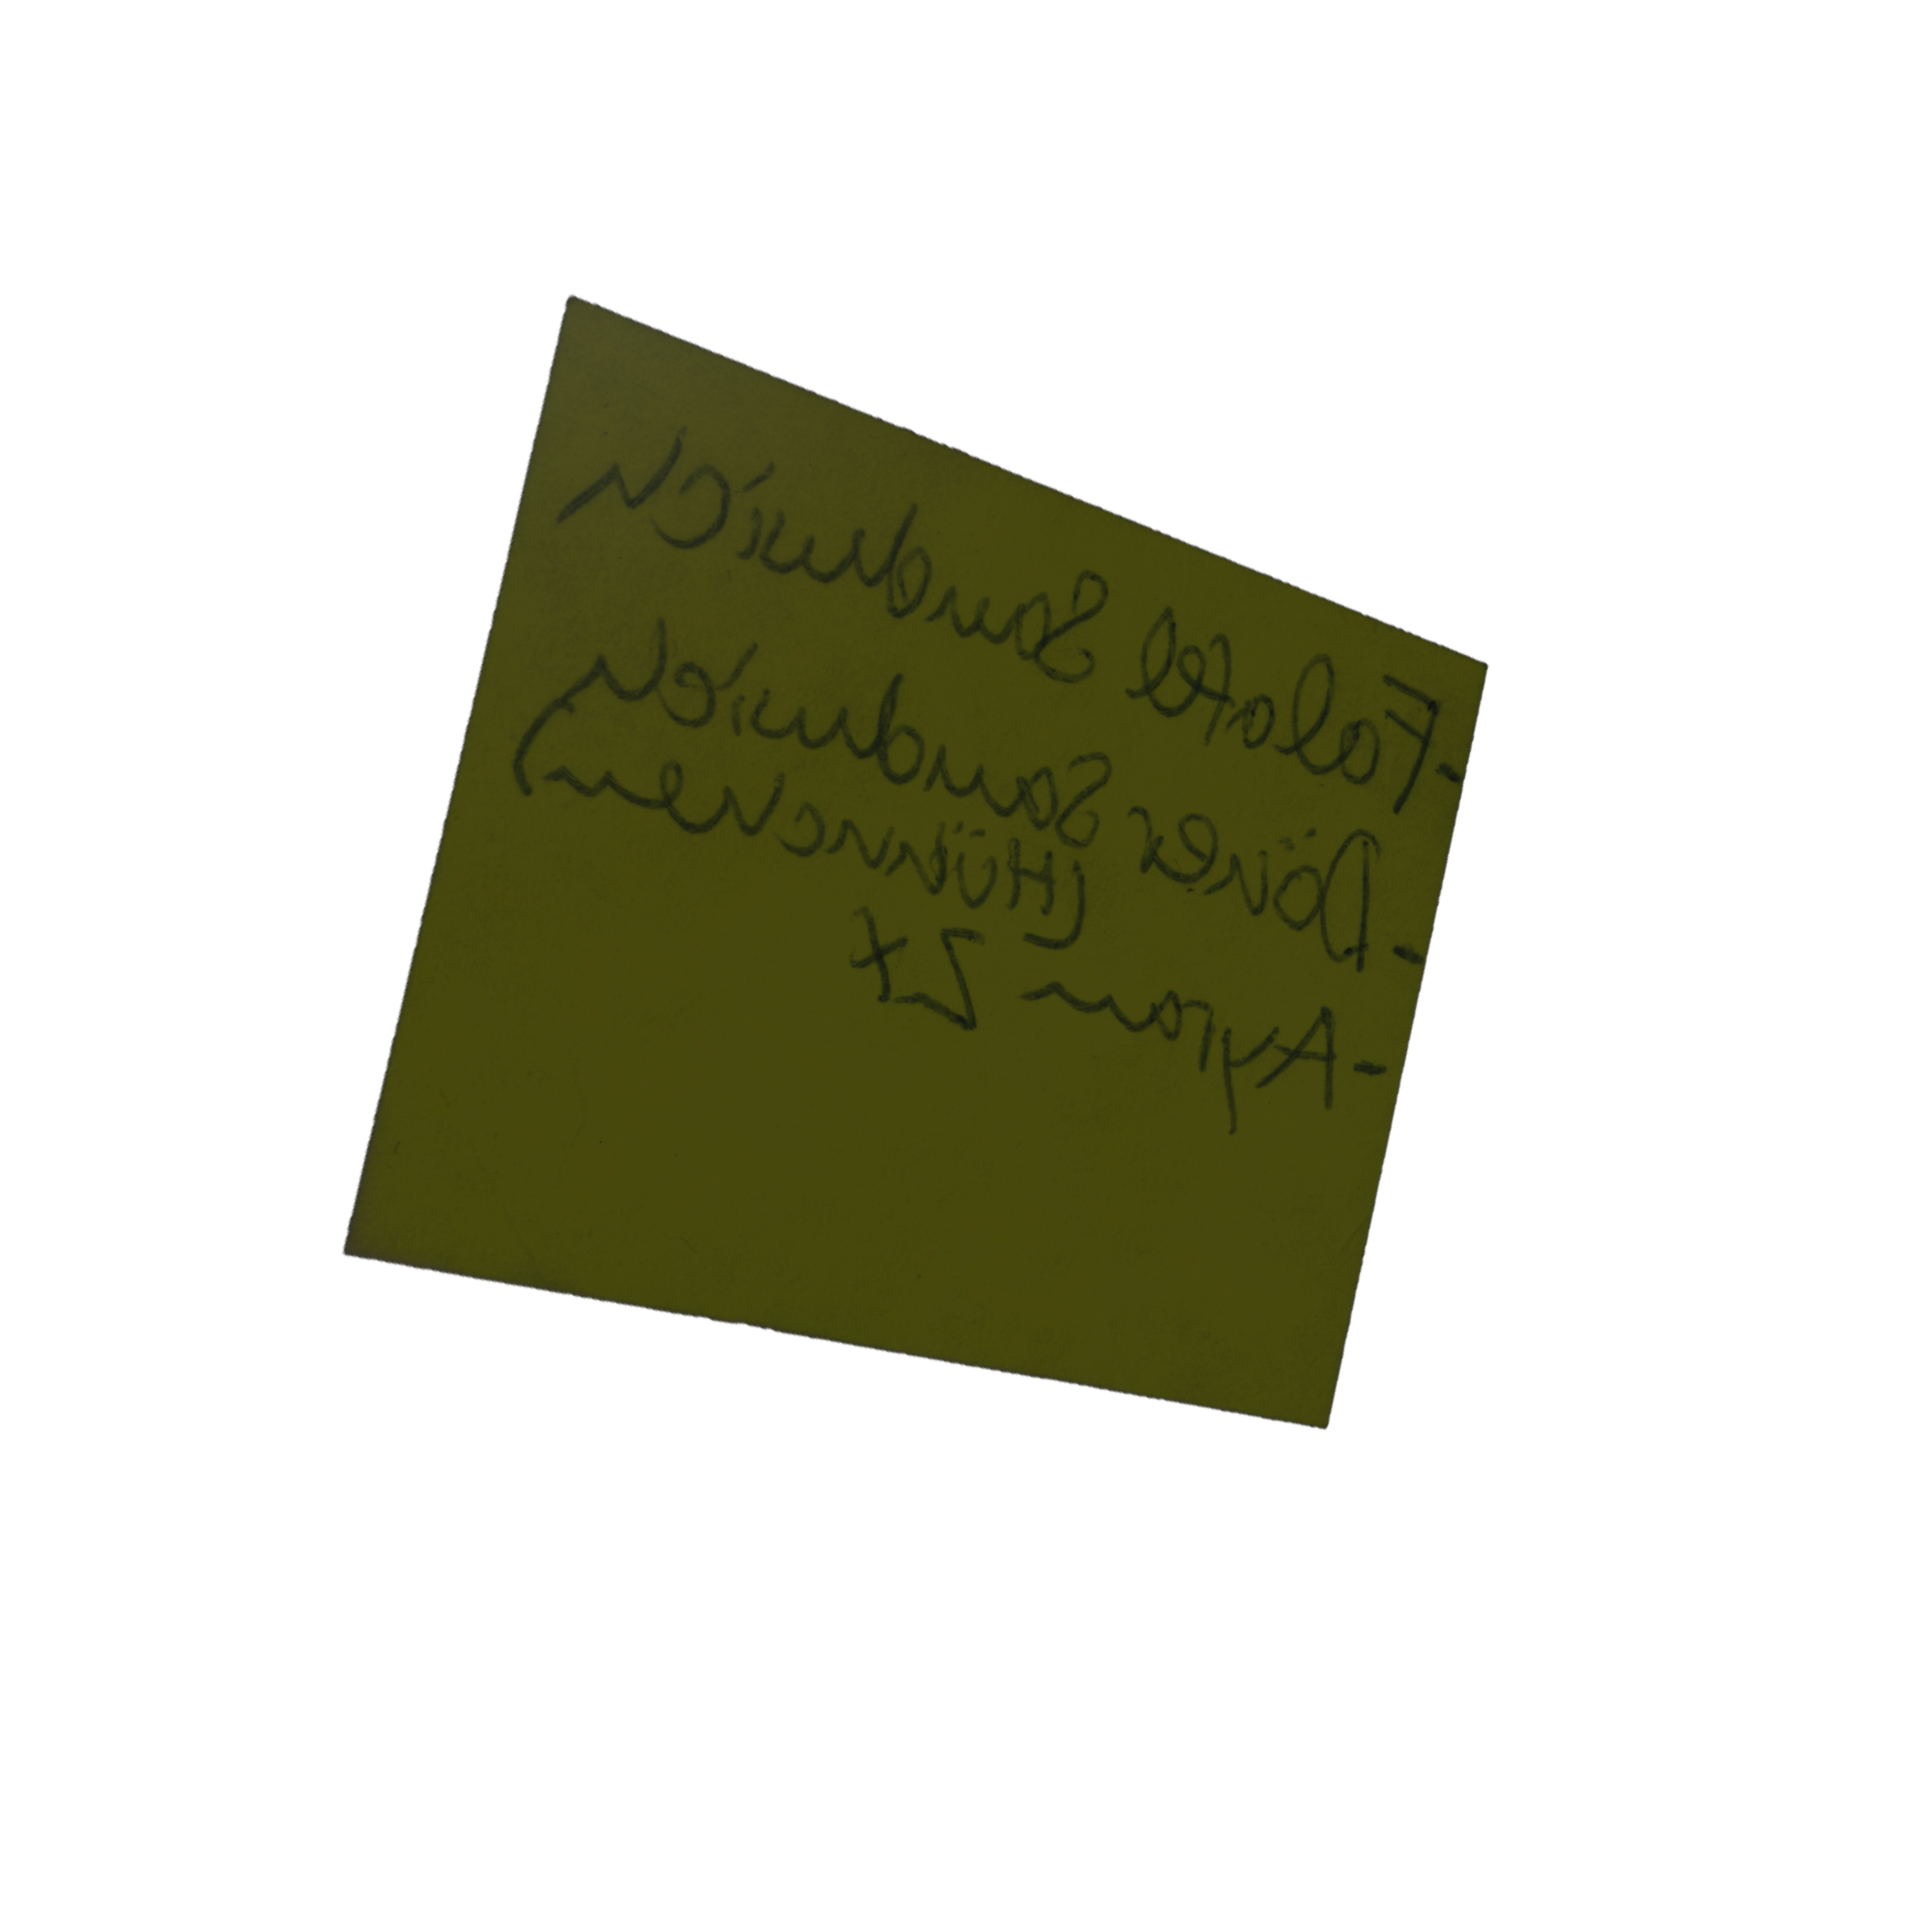 -Falafel Sandwich
-Döner Sandwich
(Hünnchen)
-Ayran 2x